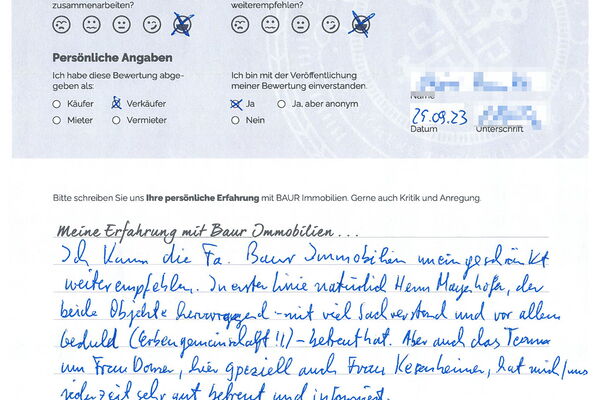 zusammenarbeiten? weiterempfehlen?
Persönliche Angaben
Ich habe diese Bewertung abge- Ich bin mit der Veröffentlichung
geben als: meiner Bewertung einverstanden.
Käufer Verkäufer Ja Ja, aber anonym
Name
Mieter Vermieter Nein 29.09.23
Datum Unterschrift
Bitte schreiben Sie uns Ihre persönliche Erfahrung mit BAUR Immobilien. Gerne auch Kritik und Anregung.
Meine Erfahrung mit Baur Immobilien...
Ich kann die Fa. Baur Immobilien uneingeschränkt
weiterempfehlen. In erster Linie natürlich Herrn Mayrhofer, der
beide Objekte hervorragend - mit viel Sachverstand und vor allem
Geduld (Erbengemeinschaft!!) - betreut hat. Aber auch das Team
um Frau Domer, hier speziell auch Frau Kexnheimer, hat mich/uns
jederzeit sehr gut betreut und informiert.